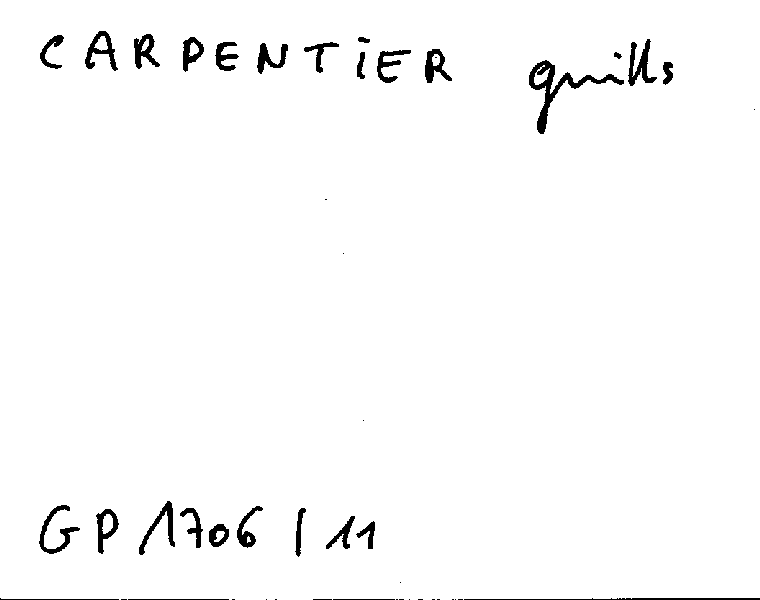 CARPENTIER quills
GP 1706 / 11